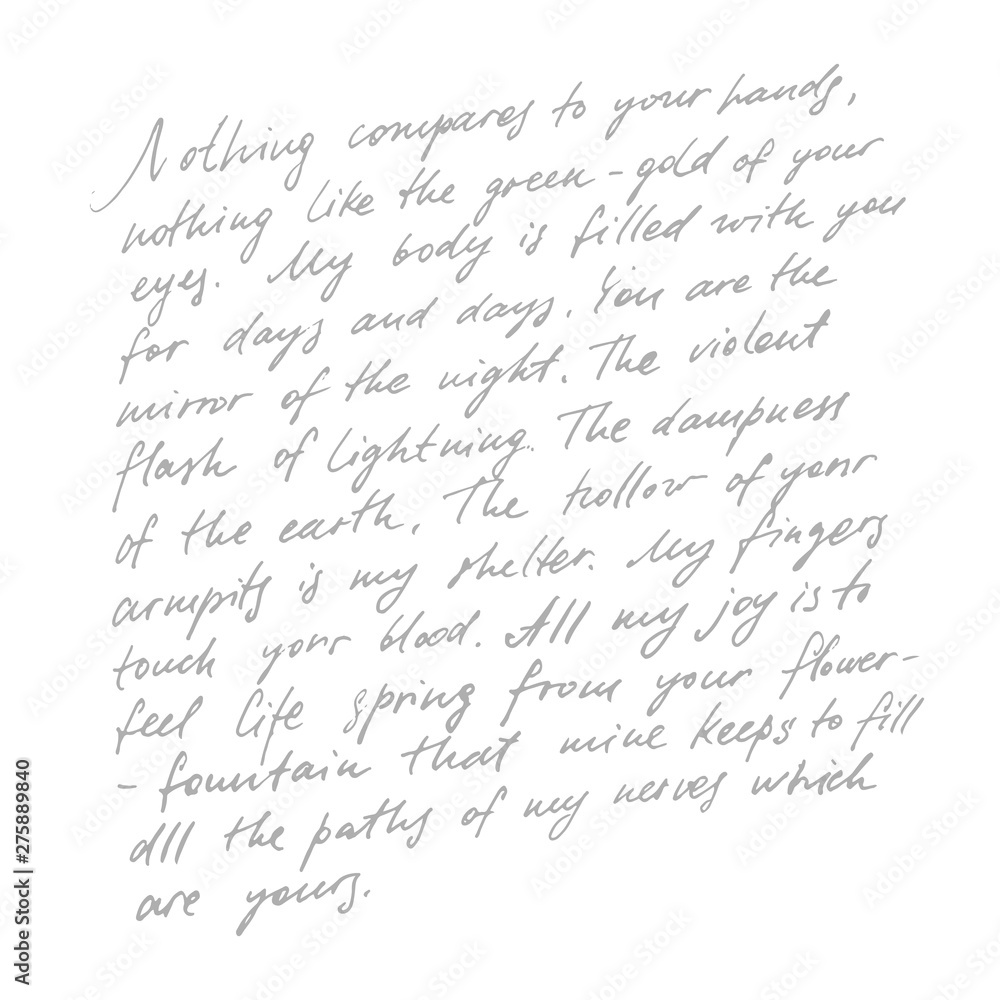 Nothing compares to your hands,
nothing like the green-gold of your
eyes. My body is filled with you
for days and days. You are the
mirror of the night. The violent
flash of lightning. The dampness
of the earth. The hollow of your
armpits is my shelter. My fingers
touch your blood. All my joy is to
feel life spring from your flower-
-fountain that mine keeps to fill
all the paths of my nerves which
are yours.
Adobe Stock | #275889840